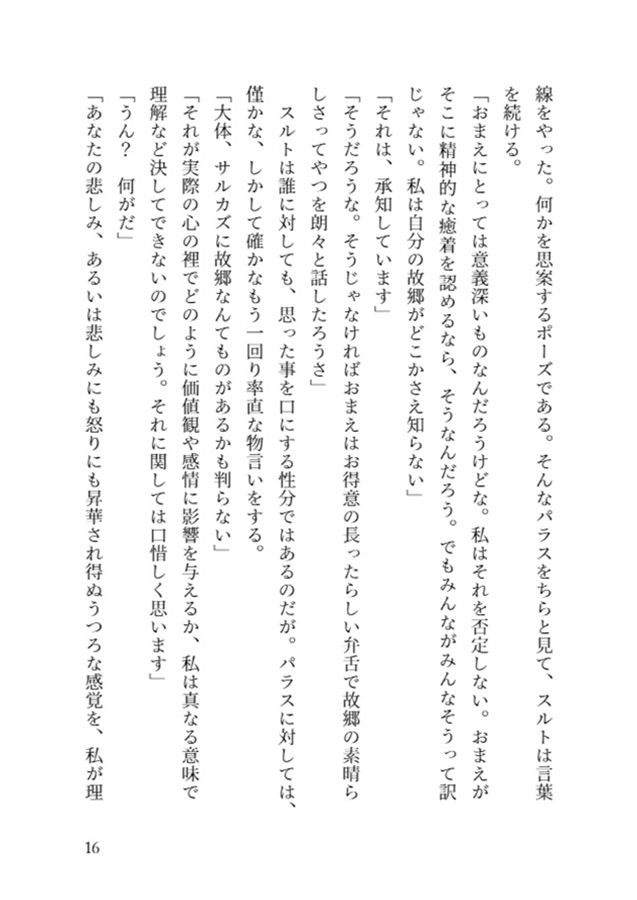 線をやった。何かを思案するポーズである。そんなパラスをちらと見て、スルトは言葉
を続ける。
「おまえにとっては意義深いものなんだろうけどな。私はそれを否定しない。おまえが
そこに精神的な癒着を認めるなら、そうなんだろう。でもみんながみんなそうって訳
じゃない。私は自分の故郷がどこかさえ知らない」
「それは、承知しています」
「そうだろうな。そうじゃなければおまえはお得意の長ったらしい弁舌で故郷の素晴ら
しさってやつを朗々と話したろうさ」
スルトは誰に対しても、思った事を口にする性分ではあるのだが。パラスに対しては、
僅かな、しかして確かなもう一回り率直な物言いをする。
「大体、サルカズに故郷なんてものがあるかも判らない」
「それが実際の心の裡でどのように価値観や感情に影響を与えるか、私は真なる意味で
理解など決してできないのでしょう。それに関しては口惜しく思います」
「うん？　何がだ」
「あなたの悲しみ、あるいは悲しみにも怒りにも昇華され得ぬうつろな感覚を、私が理
16